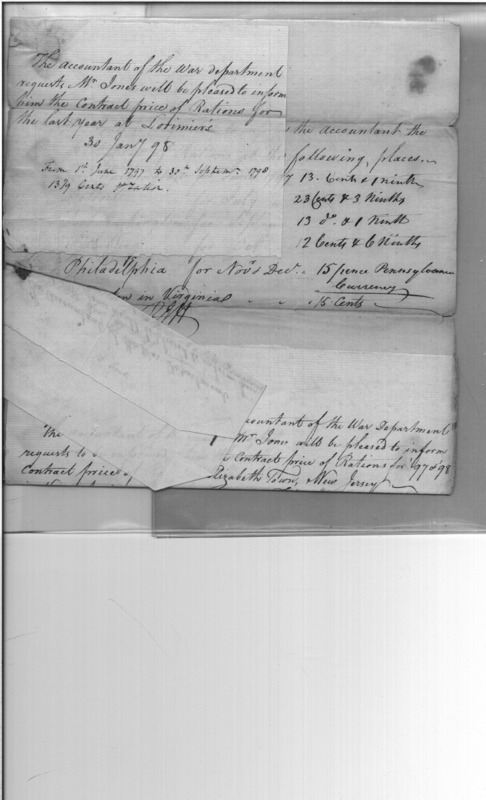 The Accountant of the War department
requests Mr Jones will be pleased to inform
him the Contract price of Rations for
the last year at Lorimiers
30 Jany 98
From 1st June 1797 to 30th Septemr 1798
13 1/9 Cents pr Ration.
the accountant the
following places
13 Cents & 1 ninth
23 Cents & 3 Ninths
13 do & 1 Ninth
12 Cents & 6 Ninths
Philadelphia for Novr & Decr 15 pence Pennsylvania
Currency
in Virginia 15 Cents
countant of the War Department
Mr Jones will be pleased to inform
Contract price of Rations for 97 & 98
Elizabeth Town, New Jersey
The
requests to
Contract price